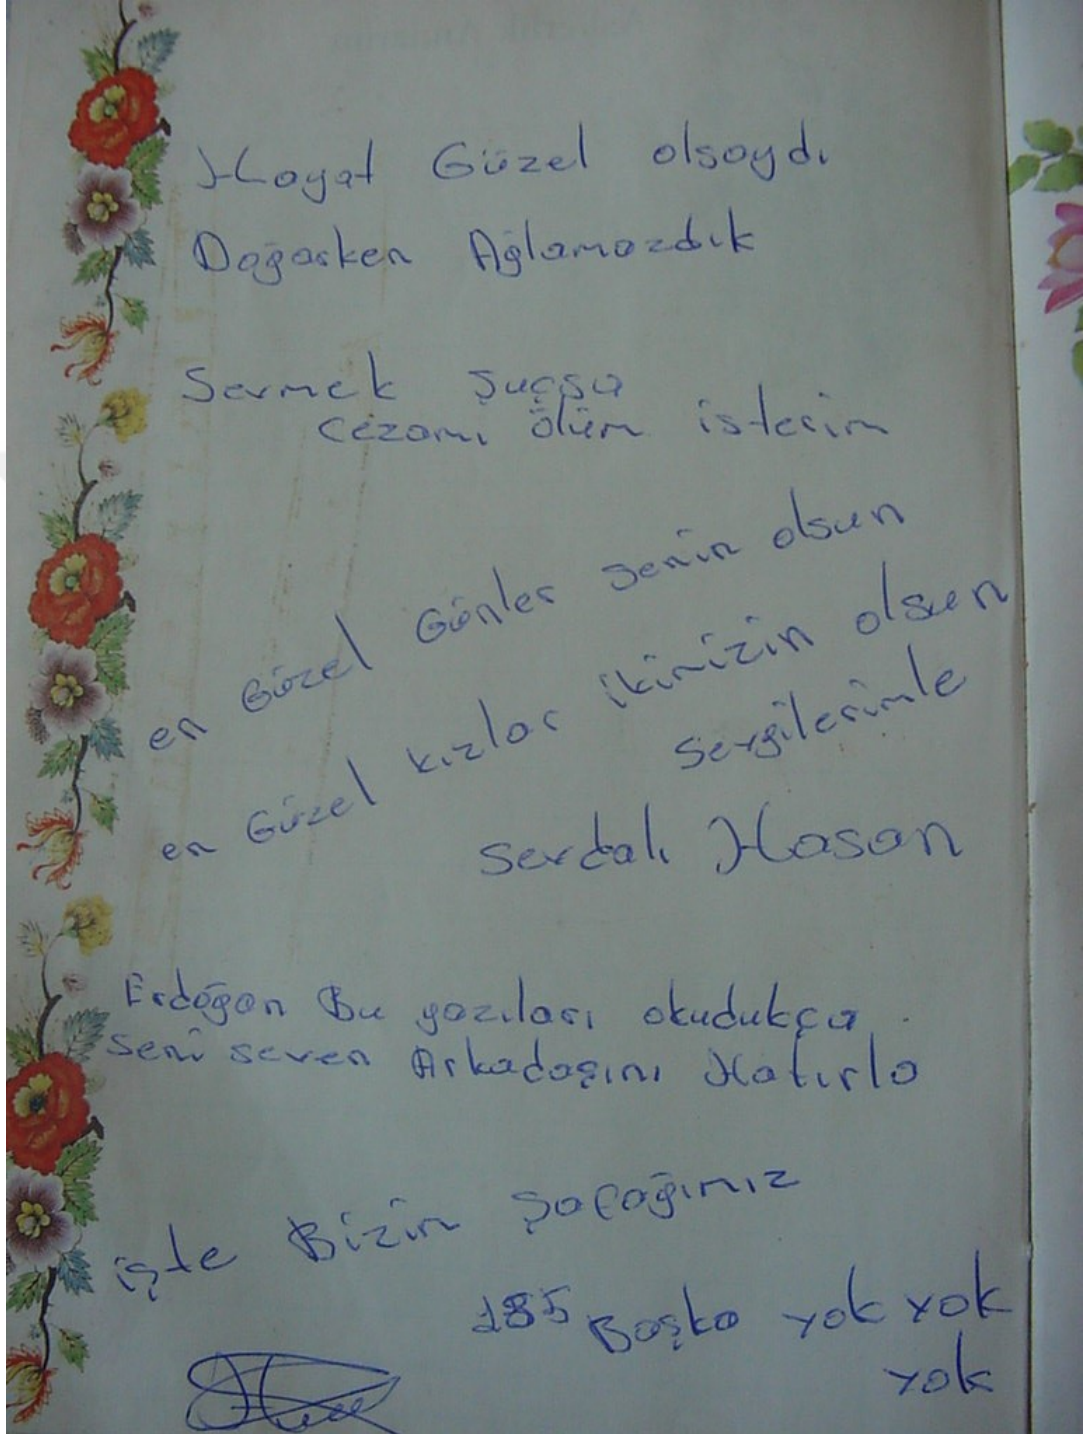 Hayat Güzel olsaydı
Doğarken Ağlamazdık
Sevmek suçsa
cezamı ölüm isterim
en Güzel Günler senin olsun
en Güzel kızlar ikimizin olsun
Sevgilerimle
Sevdalı Hasan
Erdoğan Bu yazıları okudukça
seni seven Arkadaşını Hatırla
işte Bizim Şafağımız
185 Başka yok yok
yok